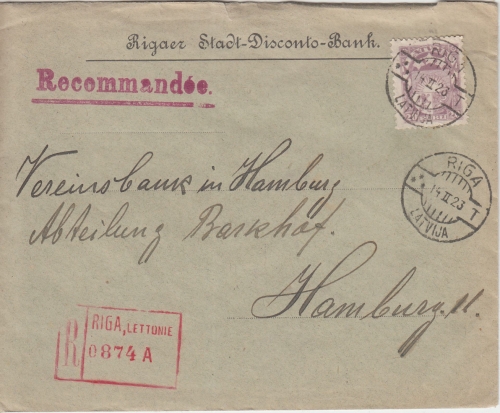 Rigaer Stadt-Disconto-Bank.
Recommandée.
RIGA
14 II 23
LATVIJA
RIGA
14 II 23
T
LATVIJA
Vereinsbank in Hamburg
Abteilung Barkhof.
Hamburg. 11.
R
RIGA, LETTONIE
0874 A